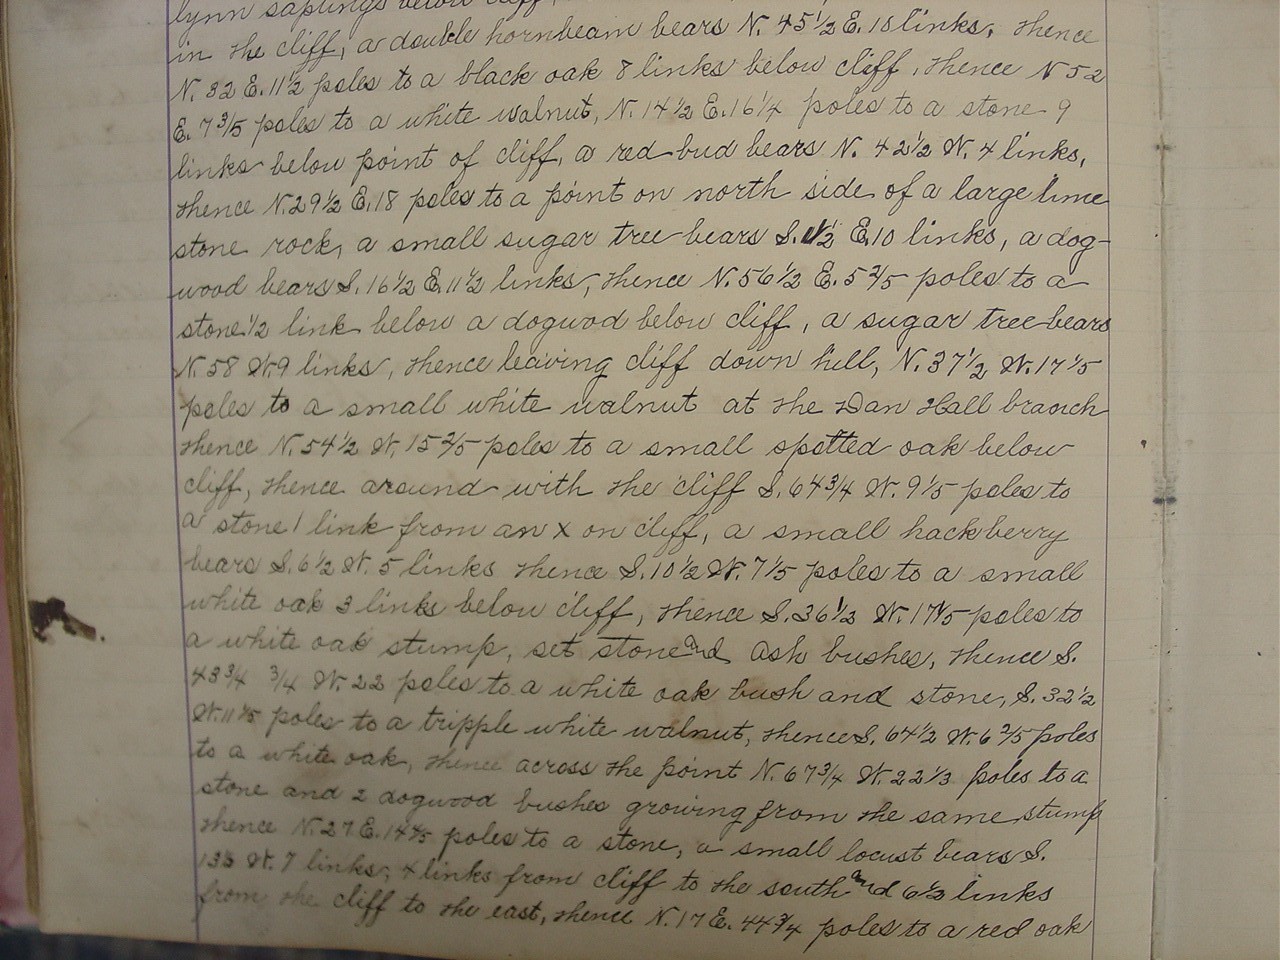 lynn saplings below cliff,
in the cliff, a double hornbeam bears N. 45 1/2 E. 18 links, thence
N. 32 E. 11 1/2 poles to a black oak 8 links below cliff, thence N 52
E. 7 3/5 poles to a white walnut, N. 14 1/2 E. 16 1/4 poles to a stone 9
links below point of cliff, a red bud bears N. 42 1/2 W. 4 links,
thence N. 29 1/2 E. 18 poles to a point on north side of a large lime
stone rock, a small sugar tree bears S. 1/2 E. 10 links, a dog-
wood bears S. 16 1/2 E. 11 1/2 links, thence N. 56 1/2 E. 5 2/5 poles to a
stone 1/2 link below a dogwod below cliff, a sugar tree bears
N. 58 W. 9 links, thence leaving cliff down hill, N. 37 1/2 W. 17 1/5
poles to a small white walnut at the Dan Hall branch
thence N. 54 1/2 W. 15 2/5 poles to a small spotted oak below
cliff, thence around with the cliff S. 64 3/4 W. 9 1/5 poles to
a stone 1 link from an X on cliff, a small hackberry
bears S. 6 1/2 W. 5 links thence S. 10 1/2 W. 7 1/5 poles to a small
white oak 3 links below cliff, thence S. 36 1/2 W. 17 1/5 poles to
a white oak stump, set stone and ash bushes, thence S.
43 3/4 3/4 W. 22 poles to a white oak bush and stone, S. 32 1/2
W. 11 1/5 poles to a tripple white walnut, thence S. 64 1/2 W. 6 2/5 poles
to a white oak, thence across the point N. 67 3/4 W. 22 1/3 poles to a
stone and 2 dogwood bushes growing from the same stump
thence N. 27 E. 14 4/5 poles to a stone, a small locust bears S.
W. 7 links, 4 links from cliff to the south and 6 1/2 links
from the cliff to the east, thence N. 17 E. 44 3/4 poles to a red oak